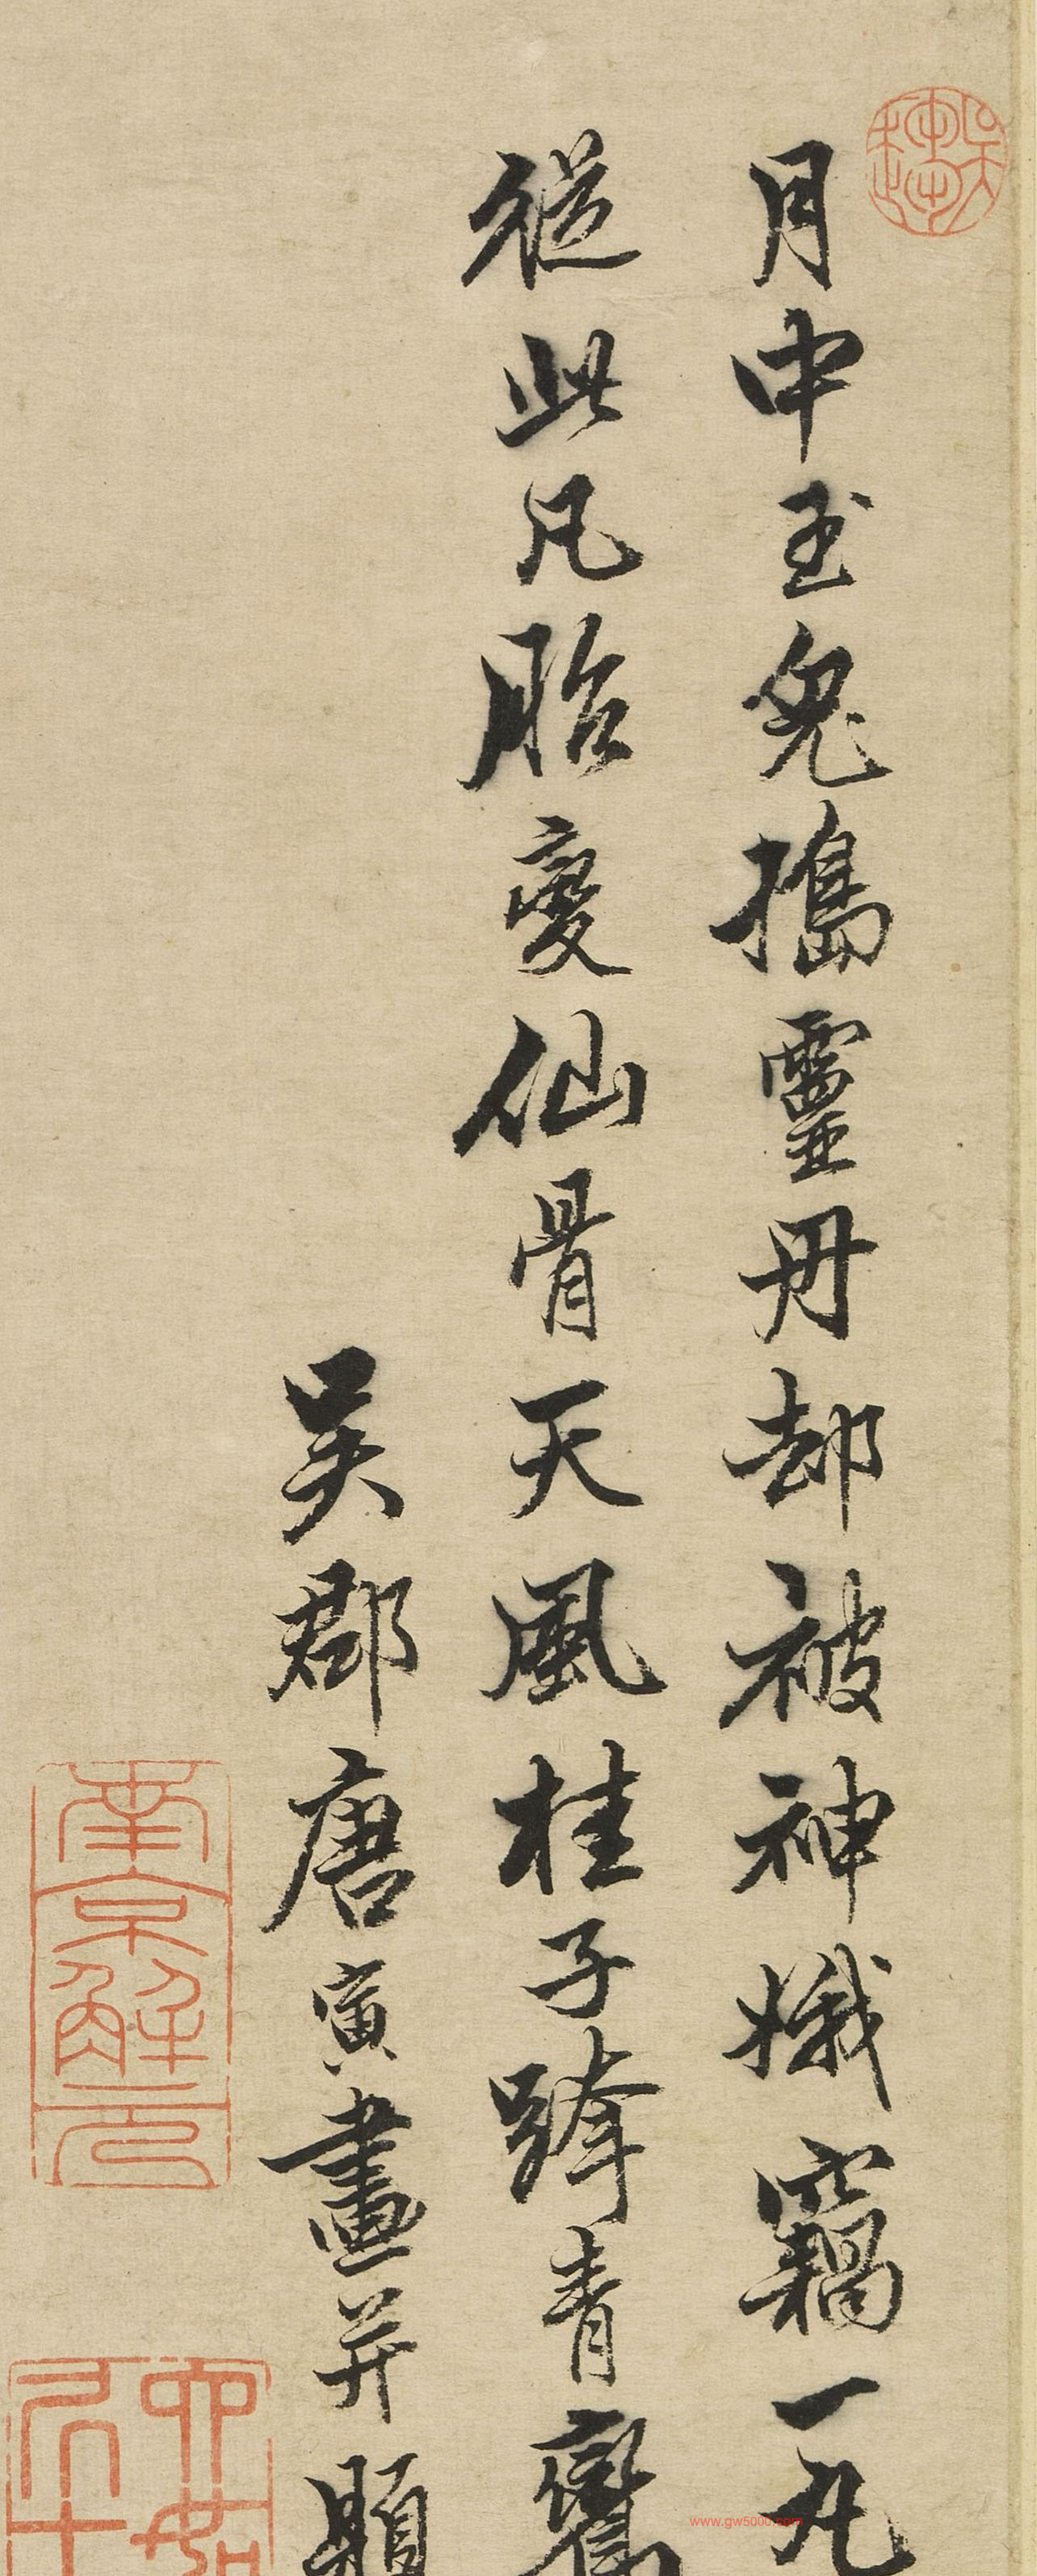 月中玉兔搗靈丹却被神娥竊一丸
從此凡胎變仙骨天風桂子跨青鸞
吳郡唐寅畫并題
南京解元
六如
www.gw5000.com